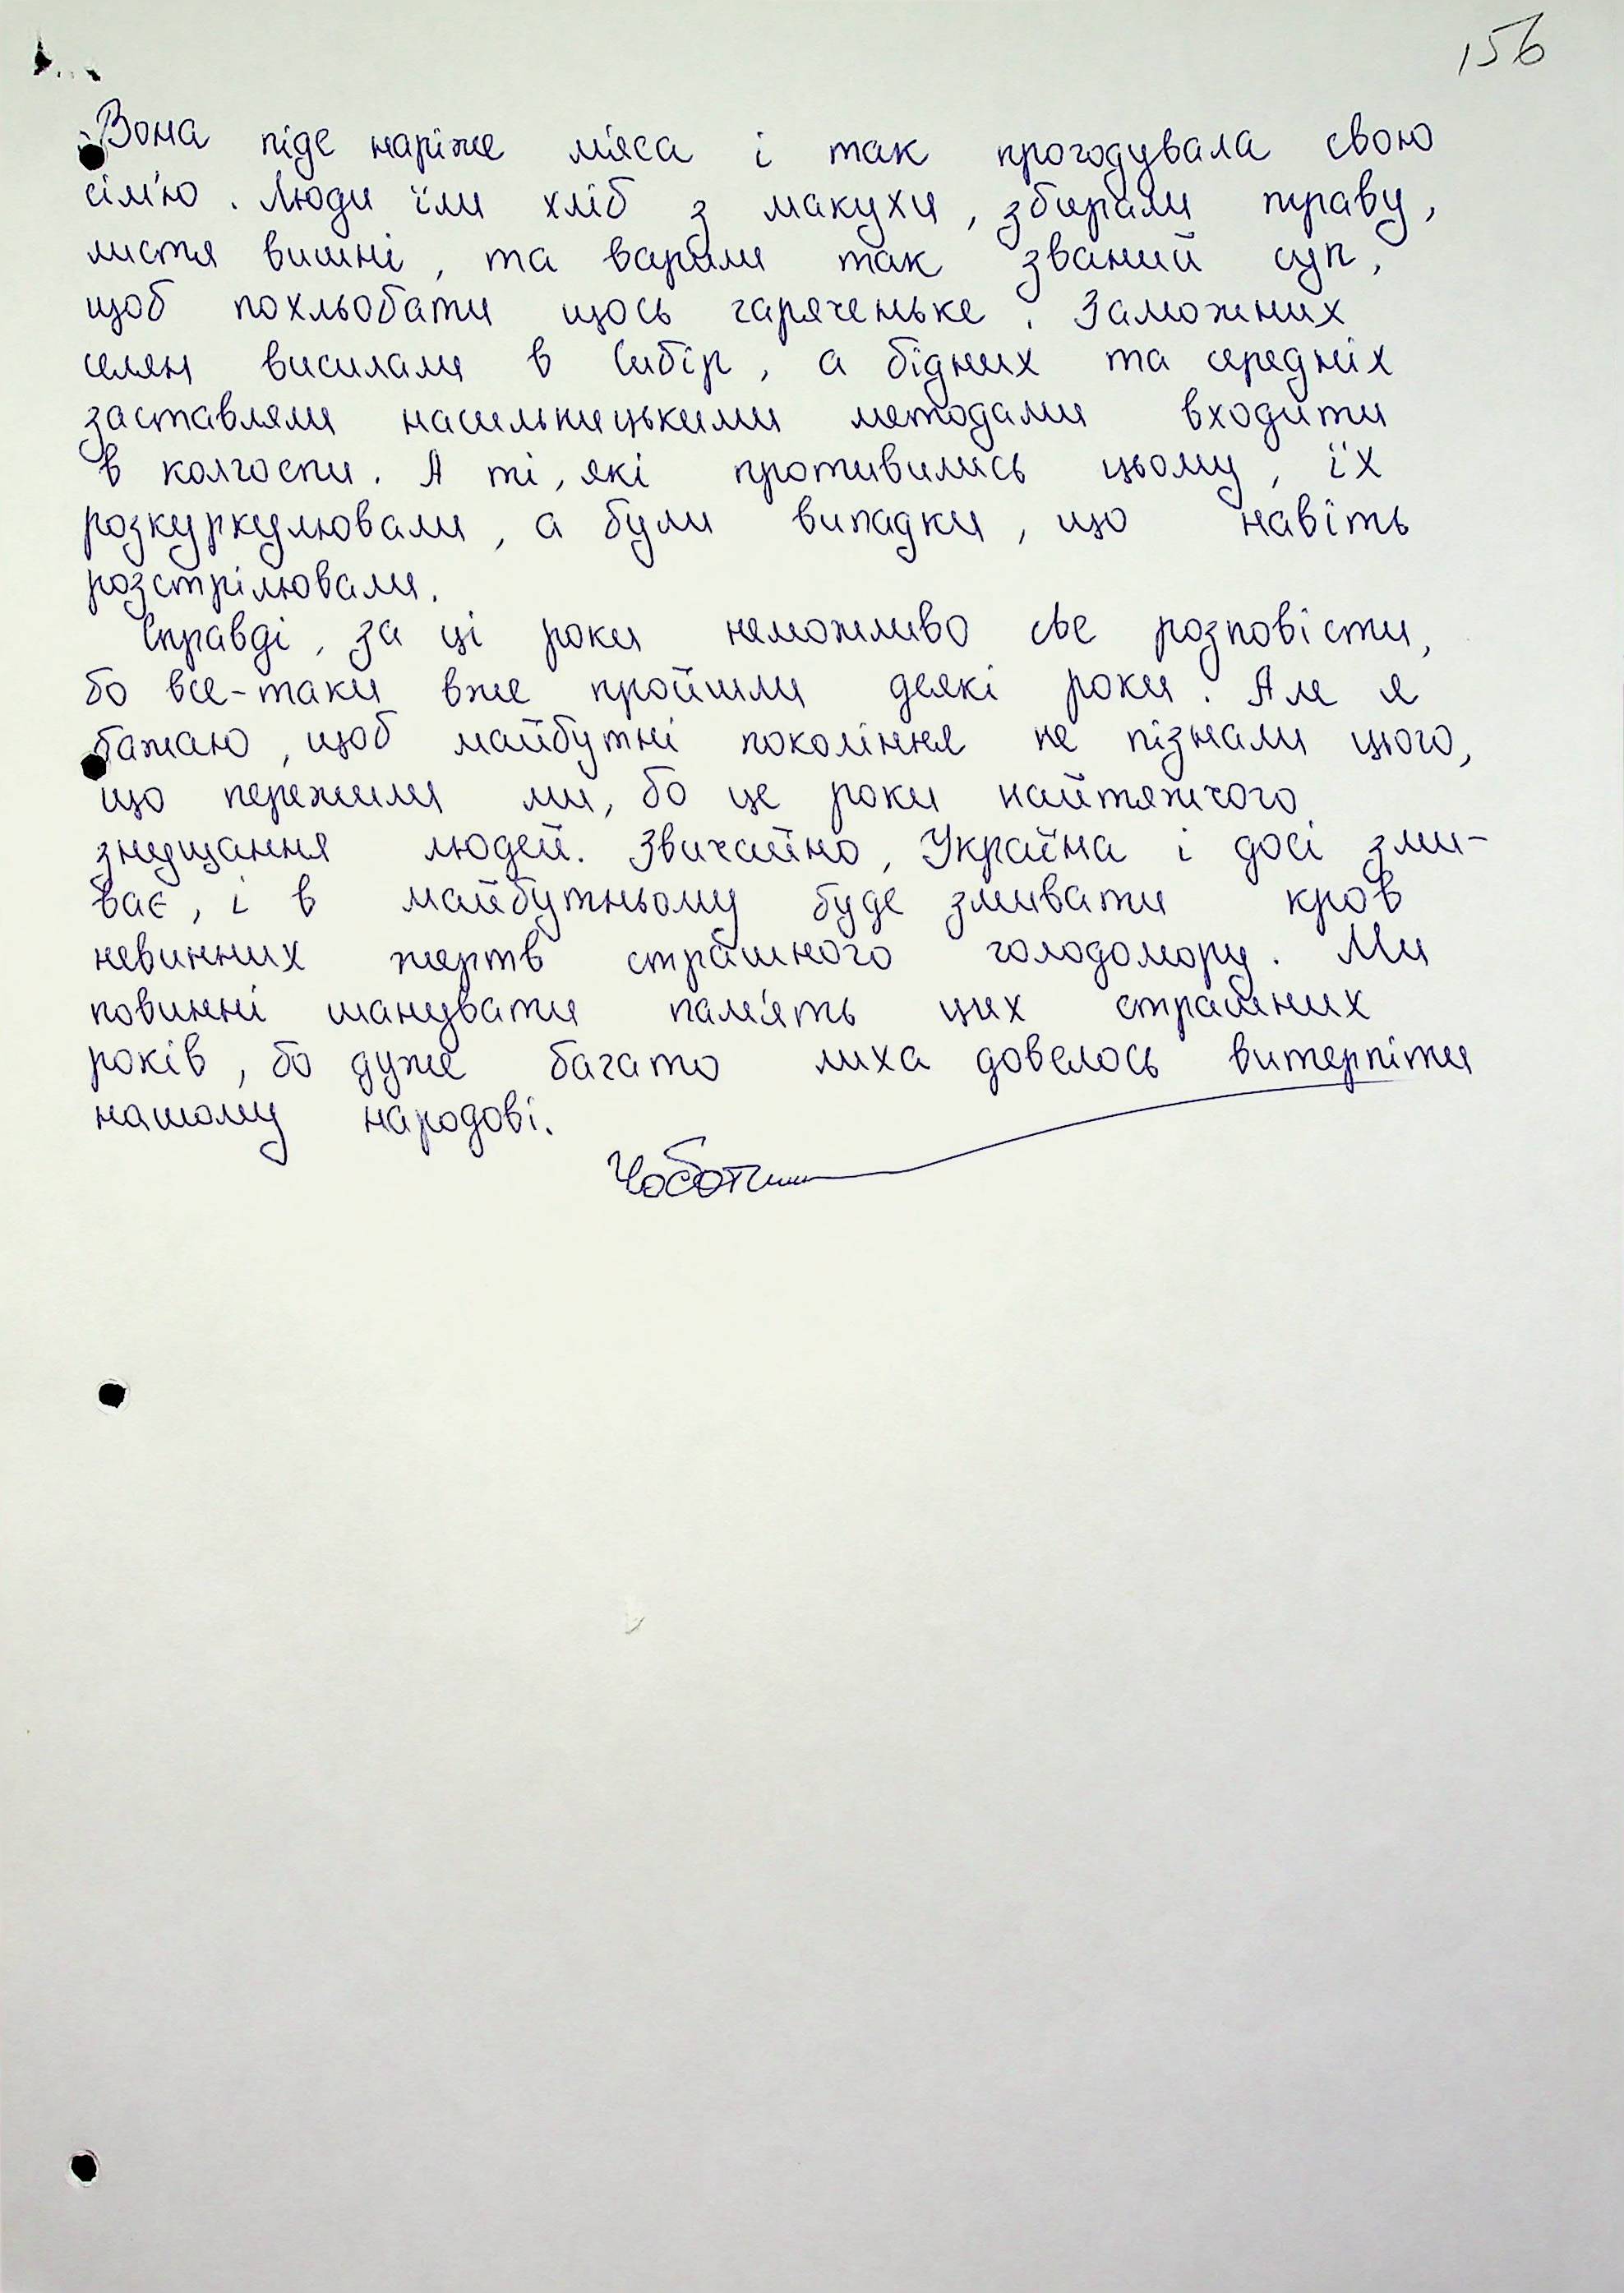 156
Вона піде наріже м'яса і так прогодувала свою
сім'ю. Люди їли хліб з макухи, збирали траву,
листя вишні, та варили так званий суп,
щоб похльобати щось гаряченьке. Заможних
селян висилали в Сибір, а бідних та середніх
заставляли насильницькими методами входити
в колгоспи. А ті, які противились цьому, їх
розкуркулювали, а були випадки, що навіть
розстрілювали.
Справді, за ці роки неможливо све розповісти,
бо все-таки вже пройшли деякі роки. Але я
бажаю, щоб майбутні покоління не пізнали цього,
що пережили ми, бо це роки найтяжчого
знущання людей. Звичайно, Україна і досі зми-
ває, і в майбутньому буде змивати кров
невинних жертв страшного голодомору. Ми
повинні шанувати пам'ять цих страшних
років, бо дуже багато лиха довелось витерпіти
нашому народові.